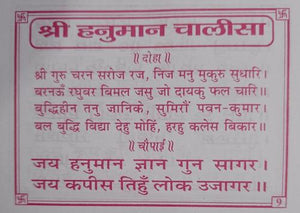 श्री हनुमान चालीसा
॥ दोहा ॥
श्री गुरु चरन सरोज रज, निज मनु मुकुरु सुधारि।
बरनऊँ रघुबर बिमल जसु जो दायकु फल चारि॥
बुद्धिहीन तनु जानिके, सुमिरौं पवन-कुमार।
बल बुद्धि बिद्या देहु मोहिं, हरहु कलेस बिकार॥
॥ चौपाई ॥
जय हनुमान ज्ञान गुन सागर।
जय कपीस तिहुँ लोक उजागर॥
१